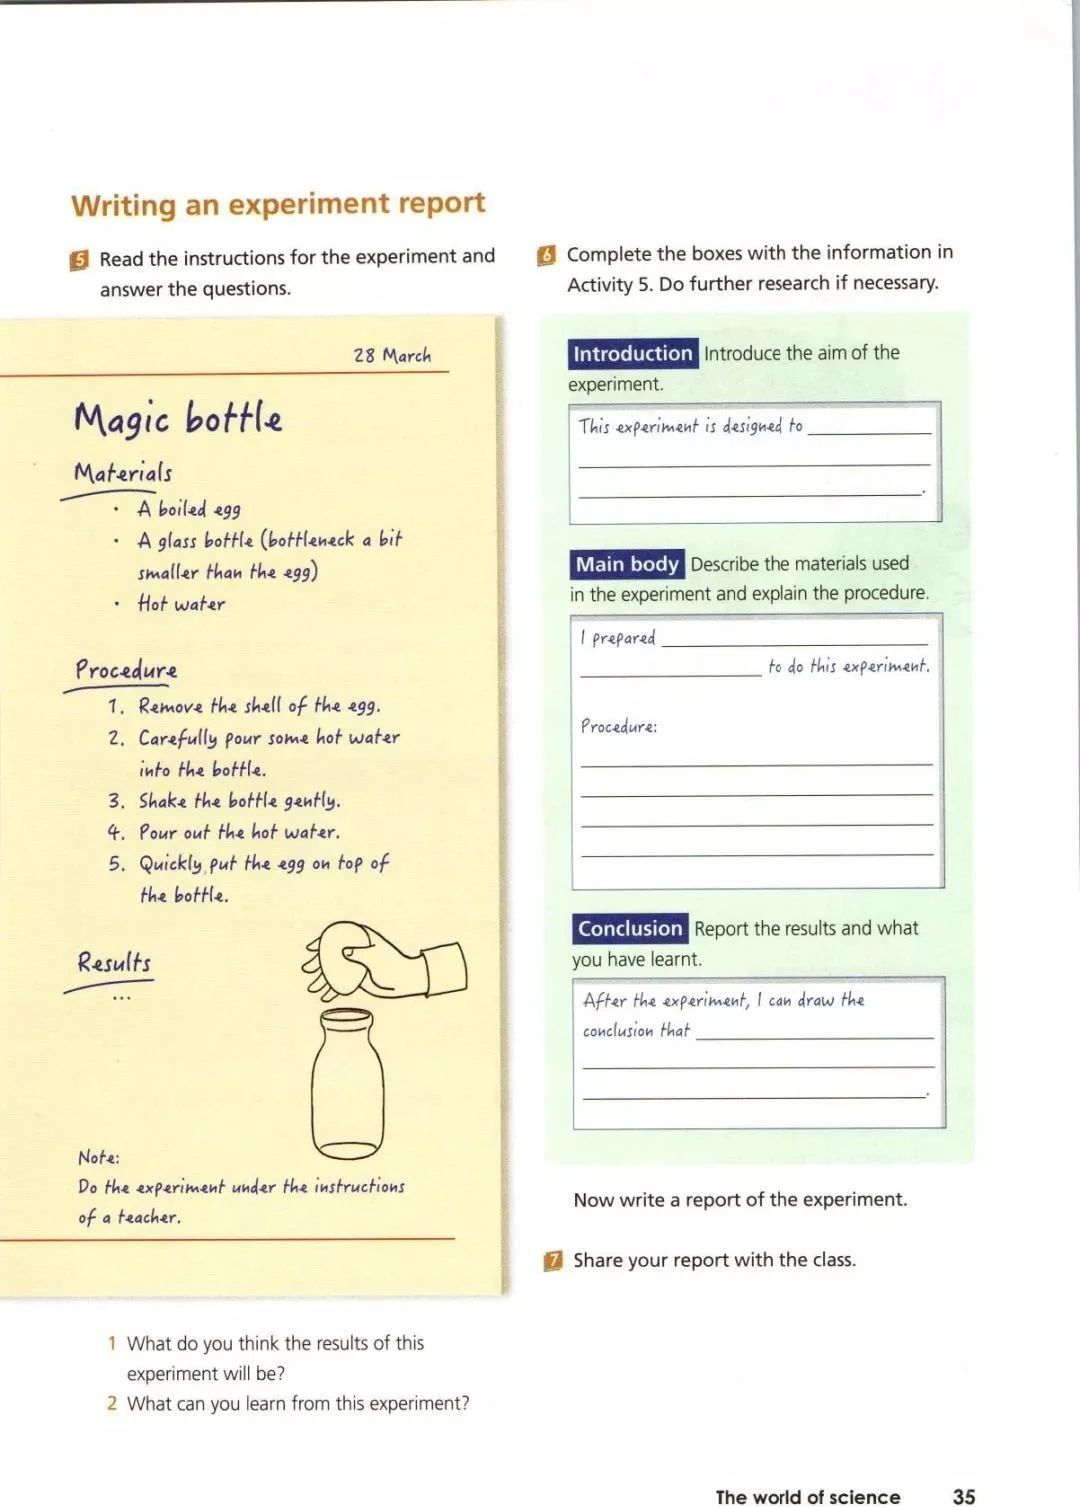 Writing an experiment report
5 Read the instructions for the experiment and
answer the questions.
28 March
Magic bottle
Materials
· A boiled egg
· A glass bottle (bottleneck a bit
smaller than the egg)
· Hot water
Procedure
1. Remove the shell of the egg.
2. Carefully pour some hot water
into the bottle.
3. Shake the bottle gently.
4. Pour out the hot water.
5. Quickly put the egg on top of
the bottle.
Results
...
Note:
Do the experiment under the instructions
of a teacher.
1 What do you think the results of this
experiment will be?
2 What can you learn from this experiment?
6 Complete the boxes with the information in
Activity 5. Do further research if necessary.
Introduction Introduce the aim of the
experiment.
This experiment is designed to ____________
____________
____________.
Main body Describe the materials used
in the experiment and explain the procedure.
I prepared ____________
____________ to do this experiment.
Procedure:
____________
____________
____________
____________
Conclusion Report the results and what
you have learnt.
After the experiment, I can draw the
conclusion that ____________
____________
____________.
Now write a report of the experiment.
7 Share your report with the class.
The world of science 35